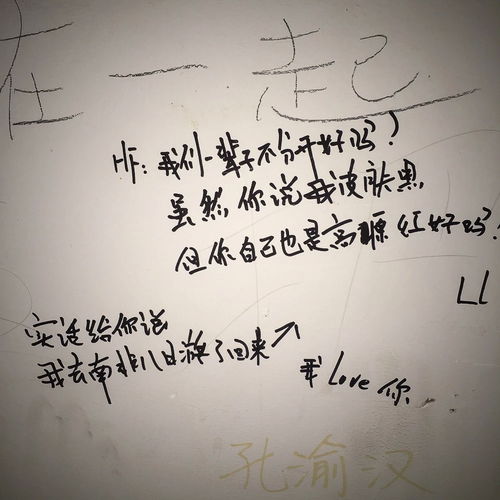 在一起
HF: 我们一辈子不分开好吗?
虽然你说我皮肤黑,
但你自己也是高原红好吗?
LL
实话给你说
我去南非八日游了回来↗
我 Love 你
孔渝汉